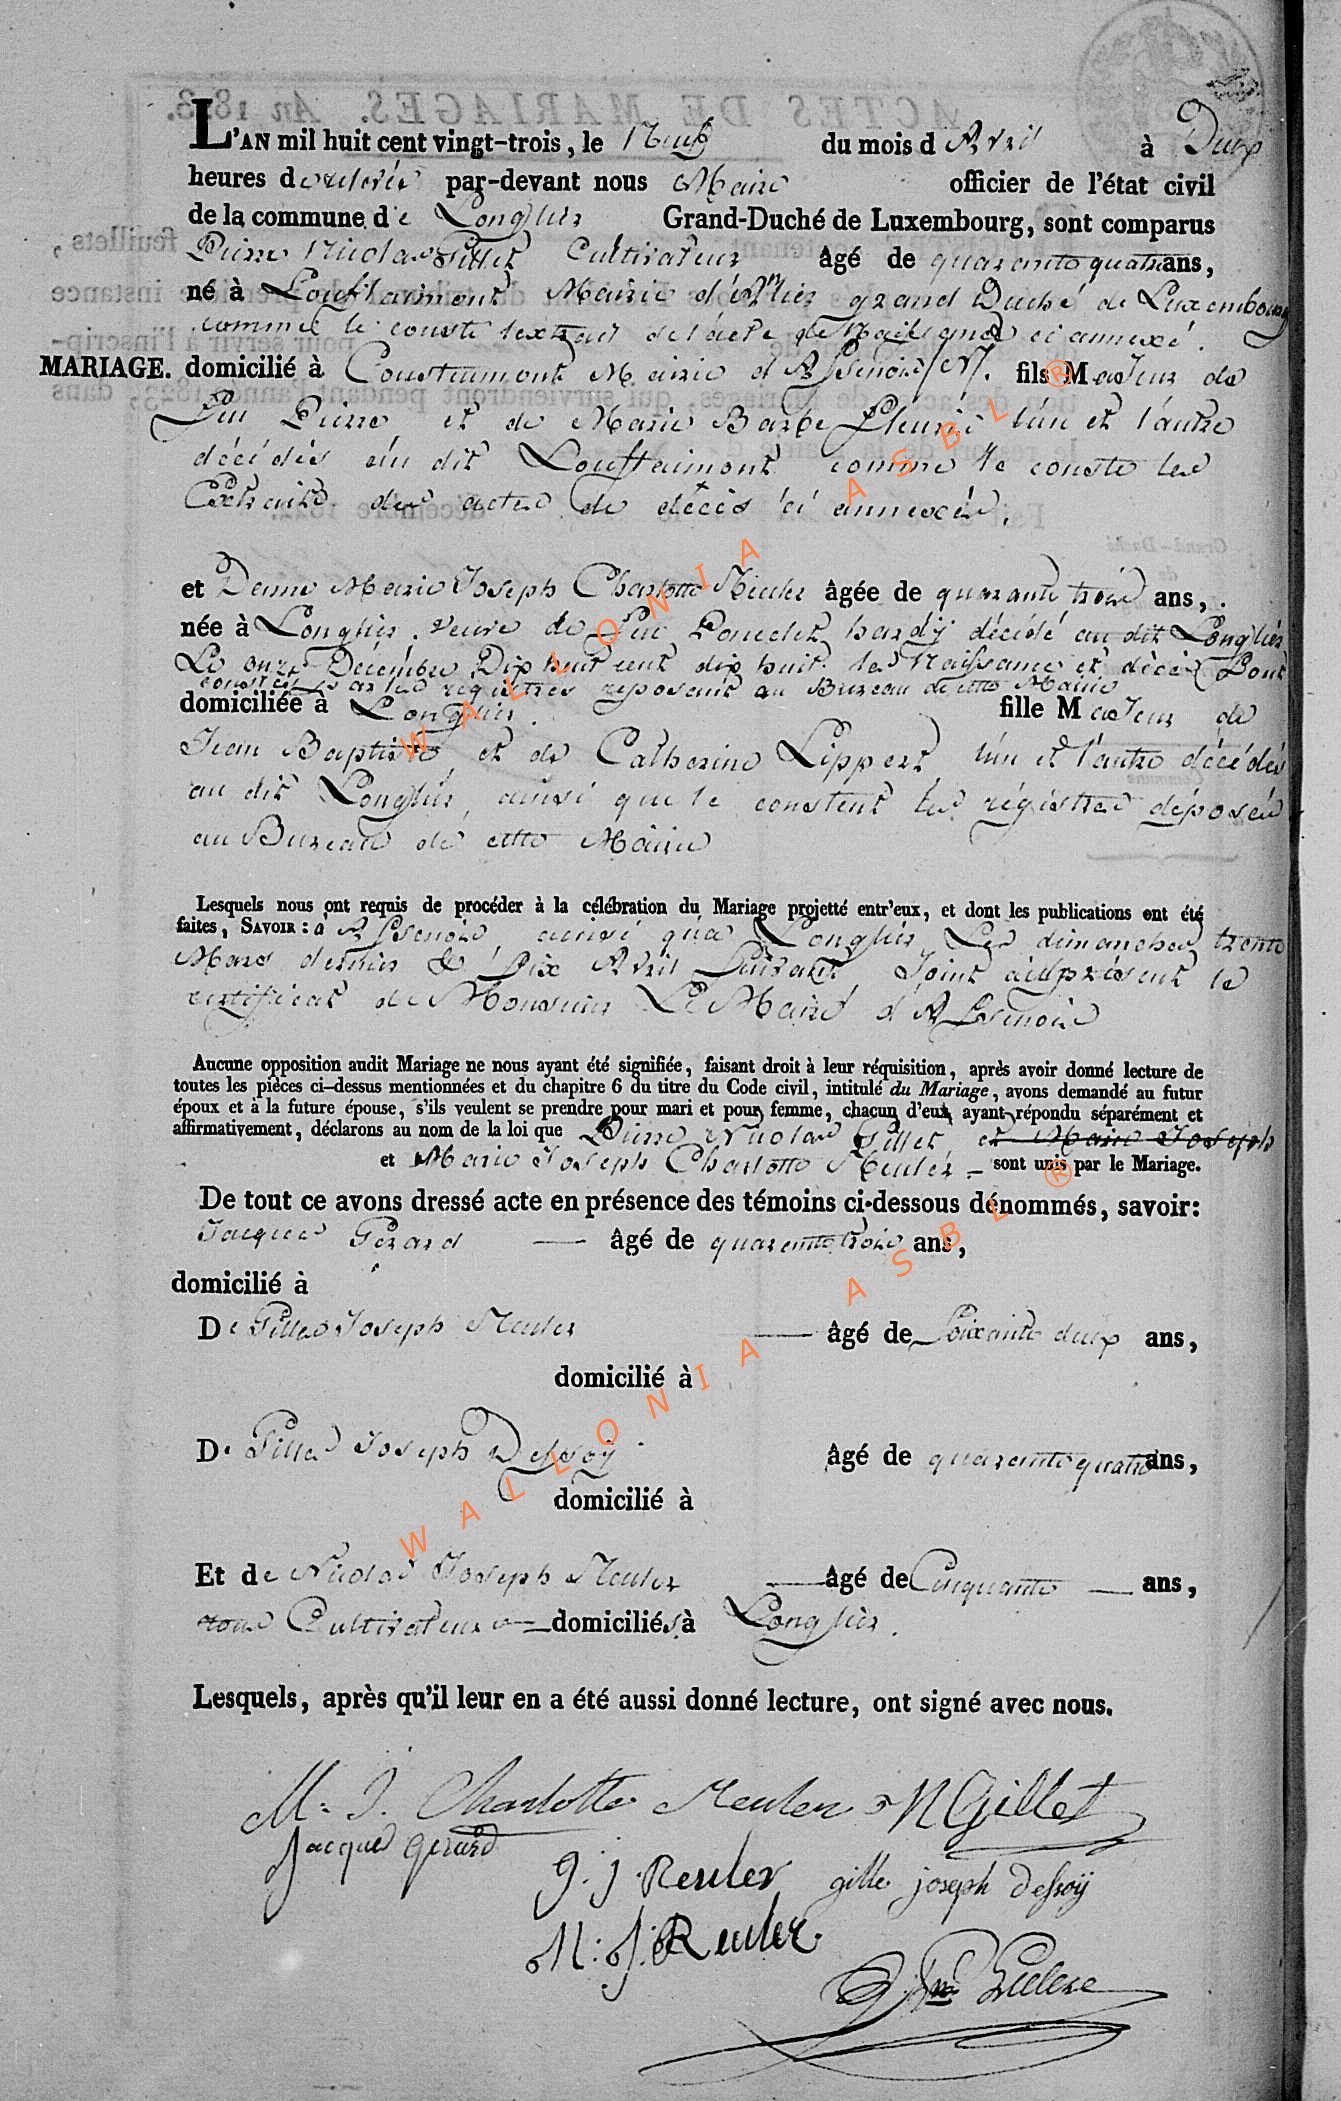 ACTES DE MARIAGES. An 1823.
L'AN mil huit cent vingt-trois, le Neuf du mois d'Avril à Deux
heures de relevée par-devant nous Maire officier de l'état civil
de la commune de Longlier Grand-Duché de Luxembourg, sont comparus
Pierre Nicolas Gillet Cultivateur âgé de quarante quatre ans,
né à Louftaimont Mairie d'Anlier grand Duché de Luxembourg
comme le conste l'extrait de l'acte de ci annexé.
MARIAGE. domicilié à Coustumont Mairie d'Assenois fils Majeur de
feu Pierre et de Marie Barbe l'un et l'autre
décédés au dit Louftaimont comme le conste les
Extraits des actes de décès ci annexés.
et Dame Marie Joseph Charlotte Reuler âgée de quarante trois ans,
née à Longlier. veuve de feu hardÿ décédé au dit Longlier
Le onze Décembre Dix huit cent dix huit. les Naissance et décès Sont
constatés par les registres reposant au Bureau de cette Mairie
domiciliée à Longlier. fille Majeur de
Jean Baptiste et de Catherine Lippert, l'un et l'autre décédés
au dit Longlier, ainsi que le constent les régistres déposés
au Bureau de cette Mairie
Lesquels nous ont requis de procéder à la célébration du Mariage projetté entr'eux, et dont les publications ont été
faites, SAVOIR : à Assenois, ainsi qu'a Longlier, Les dimanches trente
Mars dernier & Six Avril Suivant, Joint le
certificat de Monsieur Le Maire d'Assenois
Aucune opposition audit Mariage ne nous ayant été signifiée, faisant droit à leur réquisition, après avoir donné lecture de
toutes les pièces ci-dessus mentionnées et du chapitre 6 du titre du Code civil, intitulé du Mariage, avons demandé au futur
époux et à la future épouse, s'ils veulent se prendre pour mari et pour femme, chacun d'eux ayant répondu séparément et
affirmativement, déclarons au nom de la loi que Pierre Nicolas Gillet et Marie Joseph
et Marie Joseph Charlotte Reuler sont unis par le Mariage.
De tout ce avons dressé acte en présence des témoins ci-dessous dénommés, savoir:
Jacques Gérard âgé de quarante trois ans,
domicilié à
De Gilles Joseph Reuler âgé de Soixante deux ans,
domicilié à
De Gilles Joseph Defsoÿ âgé de quarante quatre ans,
domicilié à
Et de Nicolas Joseph Reuler âgé de Cinquante ans,
tous Cultivateurs domiciliés à Longlier.
Lesquels, après qu'il leur en a été aussi donné lecture, ont signé avec nous.
M: J. Charlotte Reuler PN Gillet
Jacques gerard
g. j. Reuler gille joseph Defsoÿ
N: J: Reuler
WALLONIA ASBL ®
WALLONIA ASBL ®